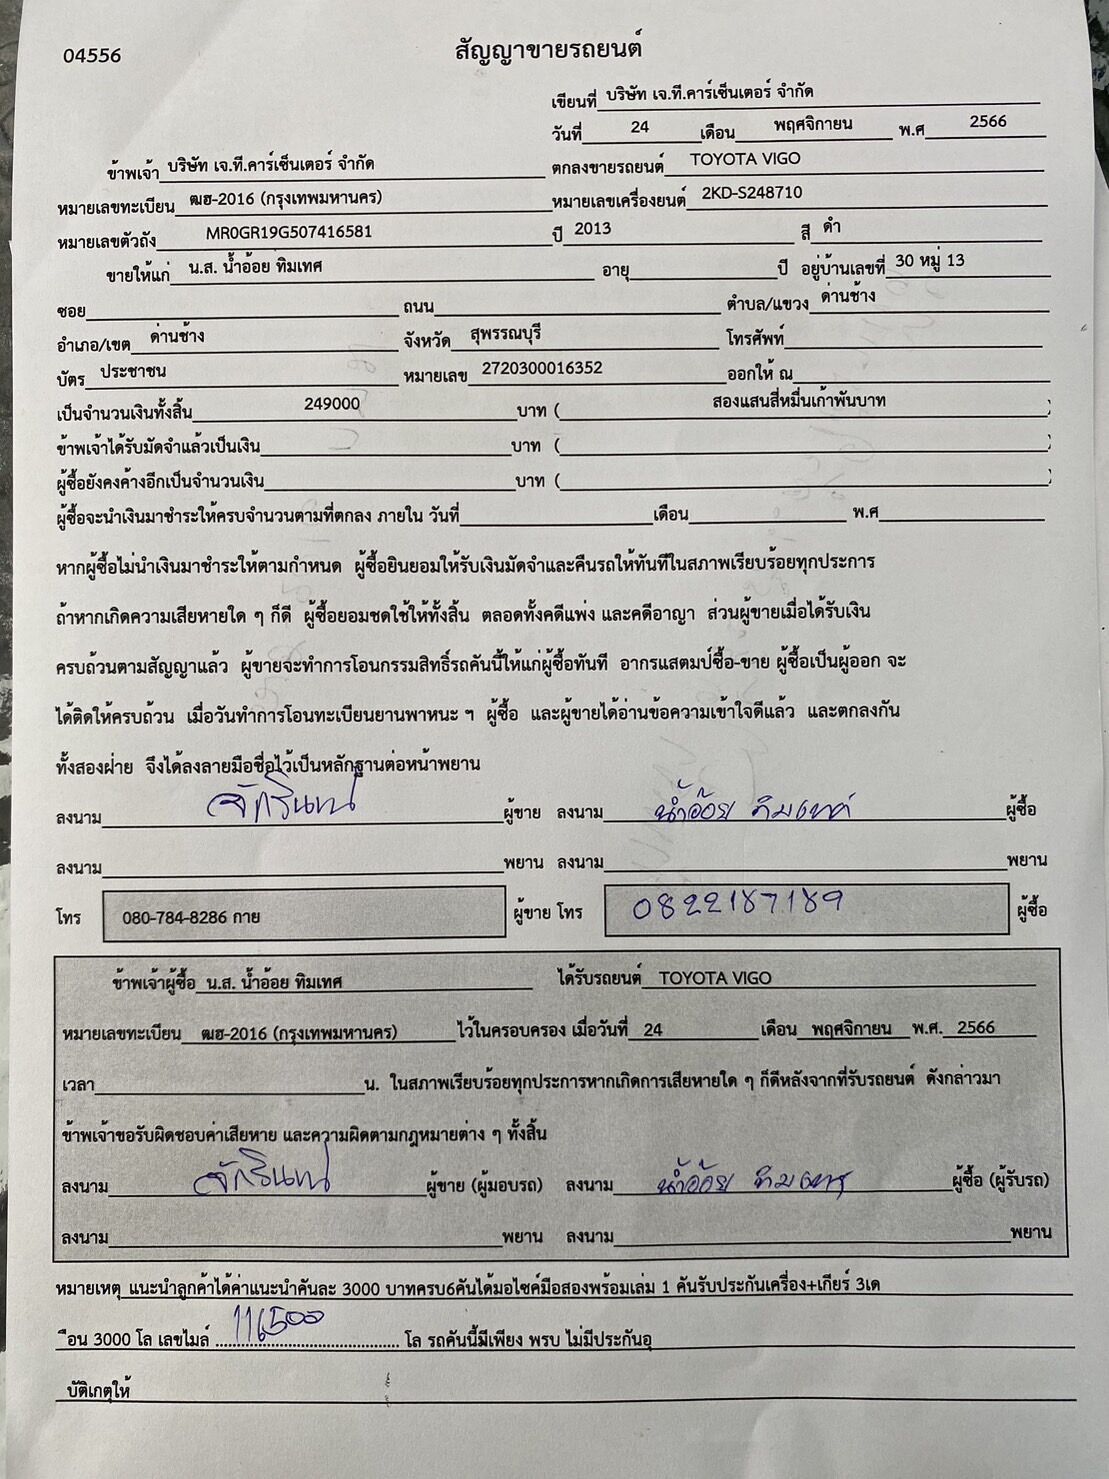 04556
สัญญาขายรถยนต์
เขียนที่ บริษัท เจ.ที.คาร์เซ็นเตอร์ จำกัด
วันที่ 24 เดือน พฤศจิกายน พ.ศ 2566
ข้าพเจ้า บริษัท เจ.ที.คาร์เซ็นเตอร์ จำกัด ตกลงขายรถยนต์ TOYOTA VIGO
หมายเลขทะเบียน ฒฮ-2016 (กรุงเทพมหานคร) หมายเลขเครื่องยนต์ 2KD-S248710
หมายเลขตัวถัง MR0GR19G507416581 ปี 2013 สี ดำ
ขายให้แก่ น.ส. น้ำอ้อย ทิมเทศ อายุ ปี อยู่บ้านเลขที่ 30 หมู่ 13
ซอย ถนน ตำบล/แขวง ด่านช้าง
อำเภอ/เขต ด่านช้าง จังหวัด สุพรรณบุรี โทรศัพท์
บัตร ประชาชน หมายเลข 2720300016352 ออกให้ ณ
เป็นจำนวนเงินทั้งสิ้น 249000 บาท ( สองแสนสี่หมื่นเก้าพันบาท )
ข้าพเจ้าได้รับมัดจำแล้วเป็นเงิน บาท ( )
ผู้ซื้อยังคงค้างอีกเป็นจำนวนเงิน บาท ( )
ผู้ซื้อจะนำเงินมาชำระให้ครบจำนวนตามที่ตกลง ภายใน วันที่ เดือน พ.ศ
หากผู้ซื้อไม่นำเงินมาชำระให้ตามกำหนด ผู้ซื้อยินยอมให้รับเงินมัดจำและคืนรถให้ทันทีในสภาพเรียบร้อยทุกประการ
ถ้าหากเกิดความเสียหายใด ๆ ก็ดี ผู้ซื้อยอมชดใช้ให้ทั้งสิ้น ตลอดทั้งคดีแพ่ง และคดีอาญา ส่วนผู้ขายเมื่อได้รับเงิน
ครบถ้วนตามสัญญาแล้ว ผู้ขายจะทำการโอนกรรมสิทธิ์รถคันนี้ให้แก่ผู้ซื้อทันที อากรแสตมป์ซื้อ-ขาย ผู้ซื้อเป็นผู้ออก จะ
ได้ติดให้ครบถ้วน เมื่อวันทำการโอนทะเบียนยานพาหนะ ฯ ผู้ซื้อ และผู้ขายได้อ่านข้อความเข้าใจดีแล้ว และตกลงกัน
ทั้งสองฝ่าย จึงได้ลงลายมือชื่อไว้เป็นหลักฐานต่อหน้าพยาน
ลงนาม จักรินทน์ ผู้ขาย ลงนาม น้ำอ้อย ทิมเทศ ผู้ซื้อ
ลงนาม พยาน ลงนาม พยาน
โทร 080-784-8286 กาย ผู้ขาย โทร 0822187189 ผู้ซื้อ
ข้าพเจ้าผู้ซื้อ น.ส. น้ำอ้อย ทิมเทศ ได้รับรถยนต์ TOYOTA VIGO
หมายเลขทะเบียน ฒฮ-2016 (กรุงเทพมหานคร) ไว้ในครอบครอง เมื่อวันที่ 24 เดือน พฤศจิกายน พ.ศ. 2566
เวลา น. ในสภาพเรียบร้อยทุกประการหากเกิดการเสียหายใด ๆ ก็ดีหลังจากที่รับรถยนต์ ดังกล่าวมา
ข้าพเจ้าขอรับผิดชอบค่าเสียหาย และความผิดตามกฎหมายต่าง ๆ ทั้งสิ้น
ลงนาม จักรินทน์ ผู้ขาย (ผู้มอบรถ) ลงนาม น้ำอ้อย ทิมเทศ ผู้ซื้อ (ผู้รับรถ)
ลงนาม พยาน ลงนาม พยาน
หมายเหตุ แนะนำลูกค้าได้ค่าแนะนำคันละ 3000 บาทครบ6คันได้มอไซค์มือสองพร้อมเล่ม 1 คันรับประกันเครื่อง+เกียร์ 3เด
ือน 3000 โล เลขไมล์ 116500 โล รถคันนี้มีเพียง พรบ ไม่มีประกันอุ
บัติเกตุให้